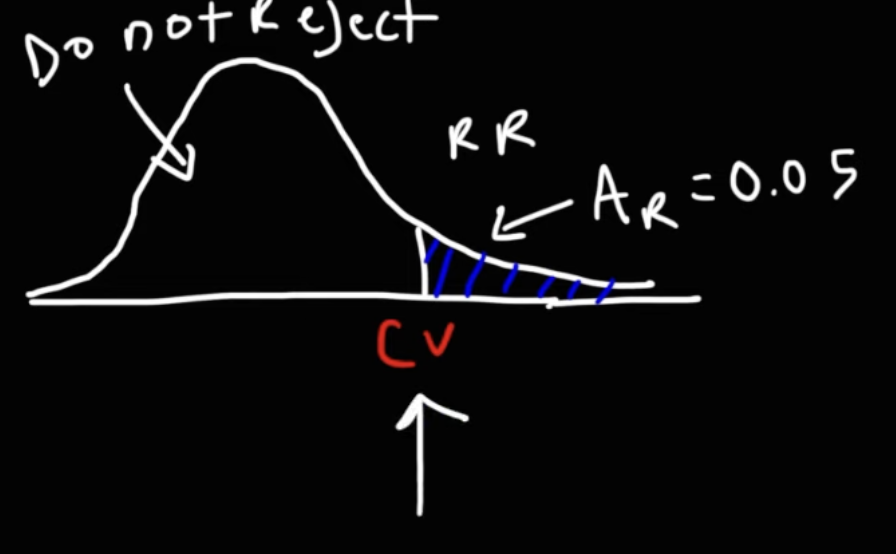 Do not Reject
RR
A_R = 0.05
CV